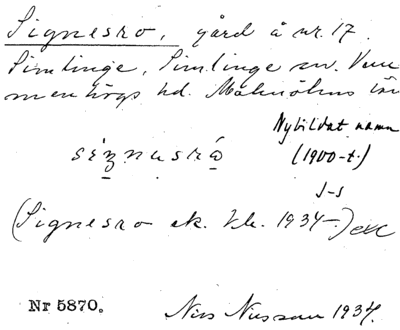 Signesro, gård å nr. 17.
Simlinge, Simlinge sn. Vem
menhögs hd. Malmöhus län
Nybildat namn
(1900-t.)
J-s
(Signesro ek. bl. 1934-)
Nr 5870.
Nils Nilsson 1934.